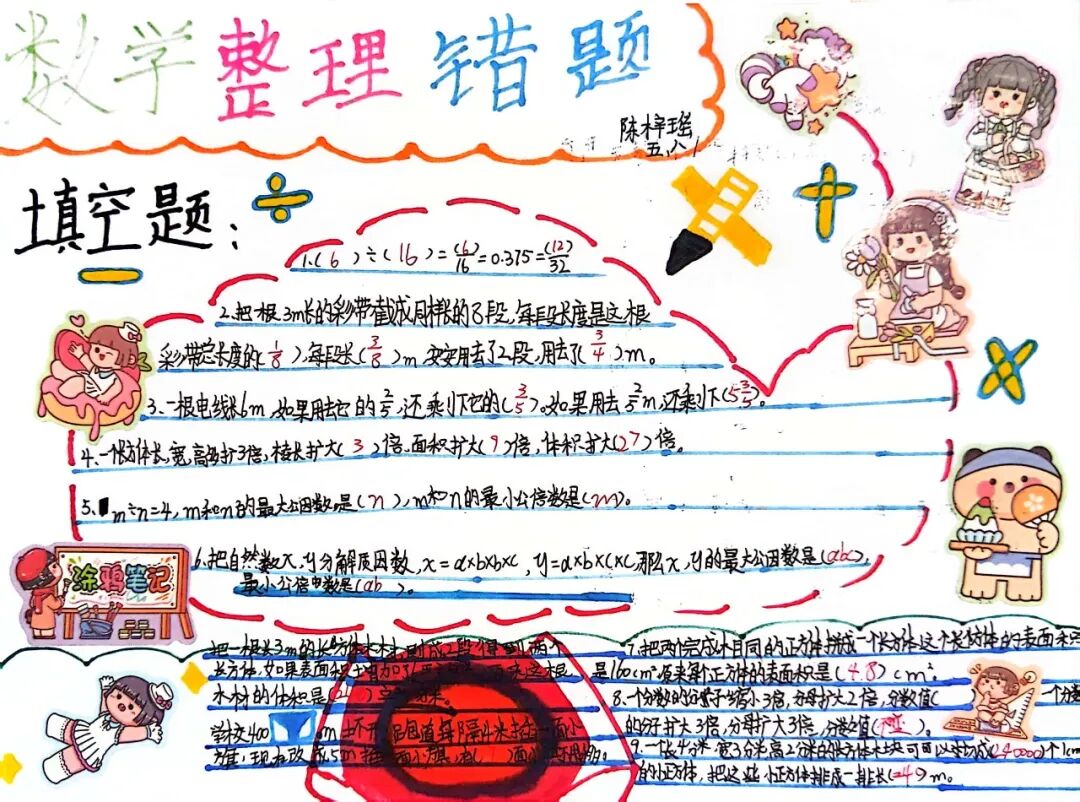 数学整理错题
陈梓瑶
五,八
填空题:
1.(6)÷(16)=(6)/16=0.375=(12)/32
2.把一根3m长的彩带截成同样长的8段,每段长度是这根
彩带总长度的(1/8),每段长(3/8)m,安安用去了2段,用去了(3/4)m。
3.一根电线长6m,如果用去它的2/5,还剩下它的(3/5)。如果用去2/5m,还剩下(5 3/5)。
4.一个长方体长,宽,高各扩3倍,棱长扩大(3)倍,面积扩大(9)倍,体积扩大(27)倍。
5.m÷n=4,m和n的最大公因数是(n),m和n的最小公倍数是(m)。
6.把自然数x,y分解质因数,x=a×b×b×c,y=a×b×c×c,那么x,y的最大公因数是(abc),
最小公倍数是(ab)。
涂鸦笔记
把一根长3m的长方体木材,
长方体,如果表面积增加
木材的体积是
7.把两个完成小相同的正方体拼成一个长方体这个长方体的表面
是160cm²原来每个正方体的表面积是(4.8)cm²
8.一个分数的分子缩小3倍,分母扩大2倍,分数值(
一个分
的分子扩大3倍,分母扩大3倍,分数值(
9.一个长4分米,宽3分米,高2分米的长方体木块可以
(24000)个1cm
的小正方体,把这些小正方体排成一排长(
m。